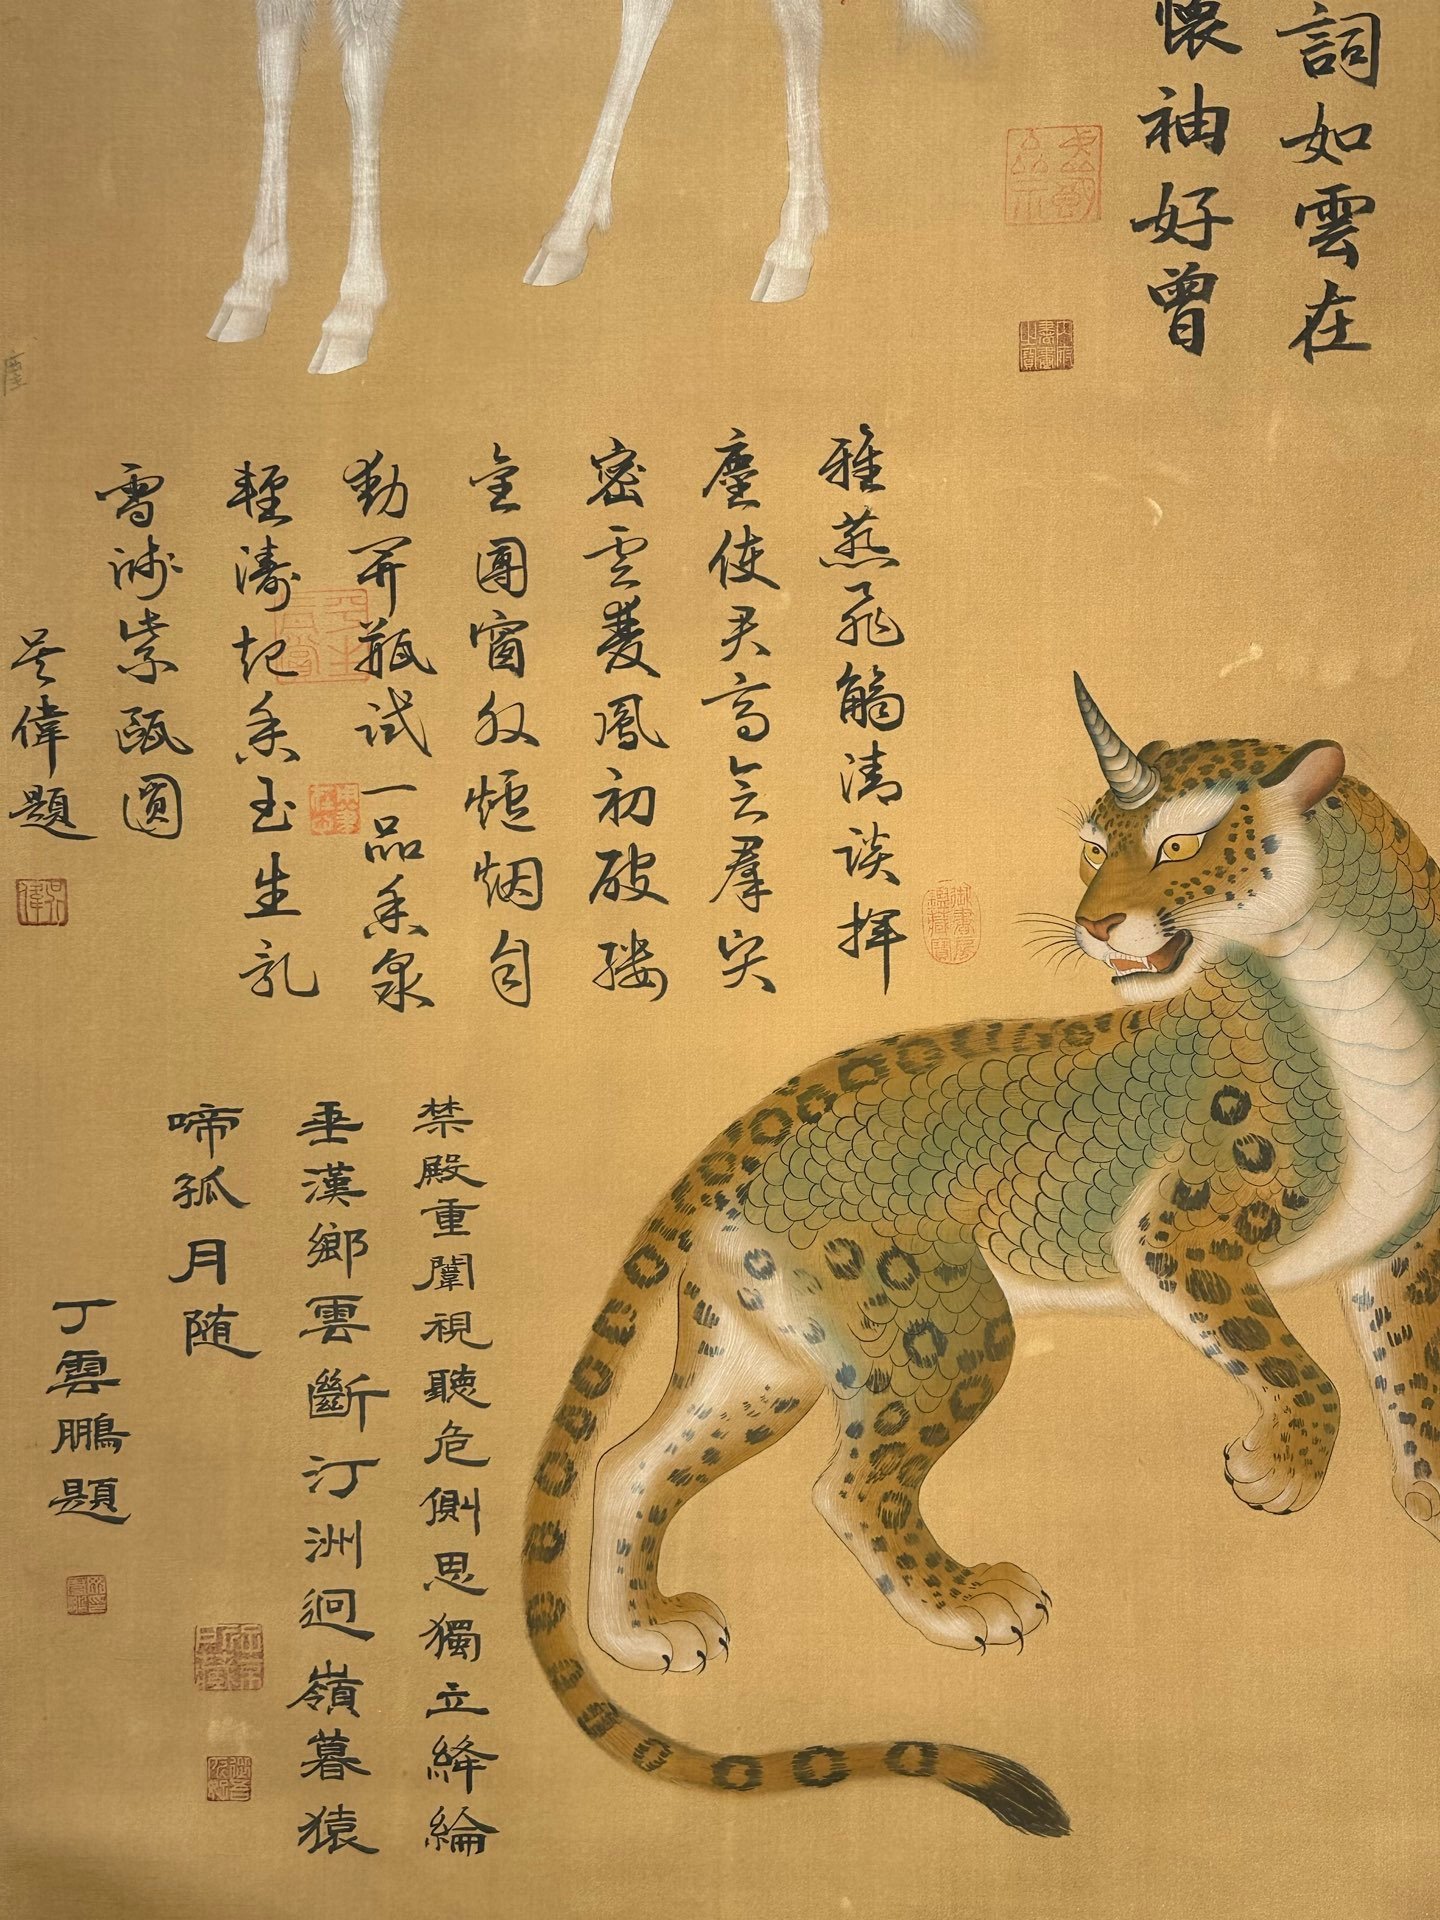 詞如雲在
懷袖好曾
雅燕飛觴清談揮
麈使君高會群賢
密雲雙鳳初破縷
金團窗外爐烟自
動開瓶試一品香泉
輕濤起香玉生乳
雪濺紫甌圓
吴偉題
吳偉
禁殿重闈視聽危側思獨立絳綸
垂漢鄉雲斷汀洲迥嶺暮猿
啼孤月随
丁雲鵬題